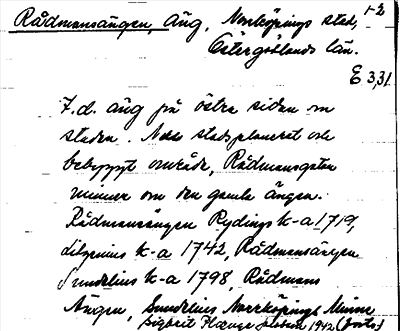 Rådmansängen, äng, Norrköpings stad, 1-2
Östergötlands län.
E 3,31
F.d. äng på östra sidan om
staden. Nu stadsplanerat och
bebyggt område, Rådmansgatan
minner om den gamla ängen.
Rådmansängen Rydings k-a 1719,
Lilzenius k-a 1742, Rådmansängen
Sundelius k-a 1798, Rådmans
Ängen, Sundelius Norrköpings Minne
1942 (forts.)